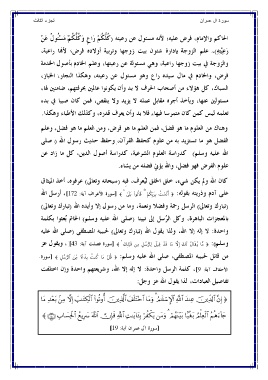 سورة آل عمران
الجزء الثالث
الحاكم والإمام، فرض عليه؛ لأنه مسئول عن رعيته (وكلكم راع وكلكم مسئول عن
رعيته)، علم الزوجة بإدارة شئون بيت زوجها وتربية أولاده فرض؛ لأنها راعية،
والزوجة في بيت زوجها راعية، وهي مسئولة عن رعيتها، وعلم الخادم بأصول الخدمة
فرض، والخادم في مال سيده راع وهو مسئول عن رعيته، وهكذا النجار، الخباز،
السباك، كل هؤلاء من أصحاب الحرف لا بد وأن يكونوا عالمين بحرفتهم، ضامنين لها،
مسئولين عنها، ويأخذ أجره مقابل عمله لا يزيد ولا ينقص، فمن كان صبيا في بدء
تعلمه ليس كمن كان متمرسا فيها، فلا بد أن يعرف قدره، وكذلك الأطباء وهكذا.
وهناك من العلوم ما هو فضل، فمن العلم ما هو فرض، ومن العلم ما هو فضل، وعلم
الفضل هو ما تستزيد به من علوم كحفظ القرآن، وحفظ حديث رسول الله (صلى
الله عليه وسلم) كدراسة العلوم الشرعية، كدراسة أصول الدين، كل ما زاد عن
علوم الفرض فهو فضل، والله يؤتي فضله من يشاء.
كان الله ولم يكن شيء، خلق الخلق ليعرف، فبه سبحانه وتعالى، عرفوه، أخذ الميثاق
على آدم وذريته بقوله: ﴿ ألست بربكم قالوا بلى ﴾ [سورة الأعراف آية: 172]، أرسل الله
(تبارك وتعالى) الرسل رحمة وفضلا ونعمة، وما من رسول إلا وأيده الله (تبارك وتعالى)
بالمعجزات الباهرة، وكل الرسل إلى نبينا (صلى الله عليه وسلم) الخاتم بعثوا بكلمة
واحدة: لا إله إلا الله، ولذا يقول الله (تبارك وتعالى) لحبيبه المصطفى (صلى الله عليه
وسلم): ﴿ ما يقال لك إلا ما قد قيل للرسل من قبلك ﴾ [سورة فصلت آية: 43]، ويقول عز
من قائل لحبيبه المصطفى، صلى الله عليه وسلم: ﴿ قل ما كنت بدعا من الرسل ﴾ [سورة
الأحقاف آية: 9]، كلمة الرسل واحدة: لا إله إلا الله، وشريعتهم واحدة وإن اختلفت
تفاصيل العبادات، لذا يقول الله عز وجل:
﴿ إن الدين عند الله الإسلام وما اختلف الذين أوتوا الكتاب إلا من بعد ما
جاءهم العلم بغيا بينهم ومن يكفر بآيات الله فإن الله سريع الحساب ﴾
[سورة آل عمران آية: 19]